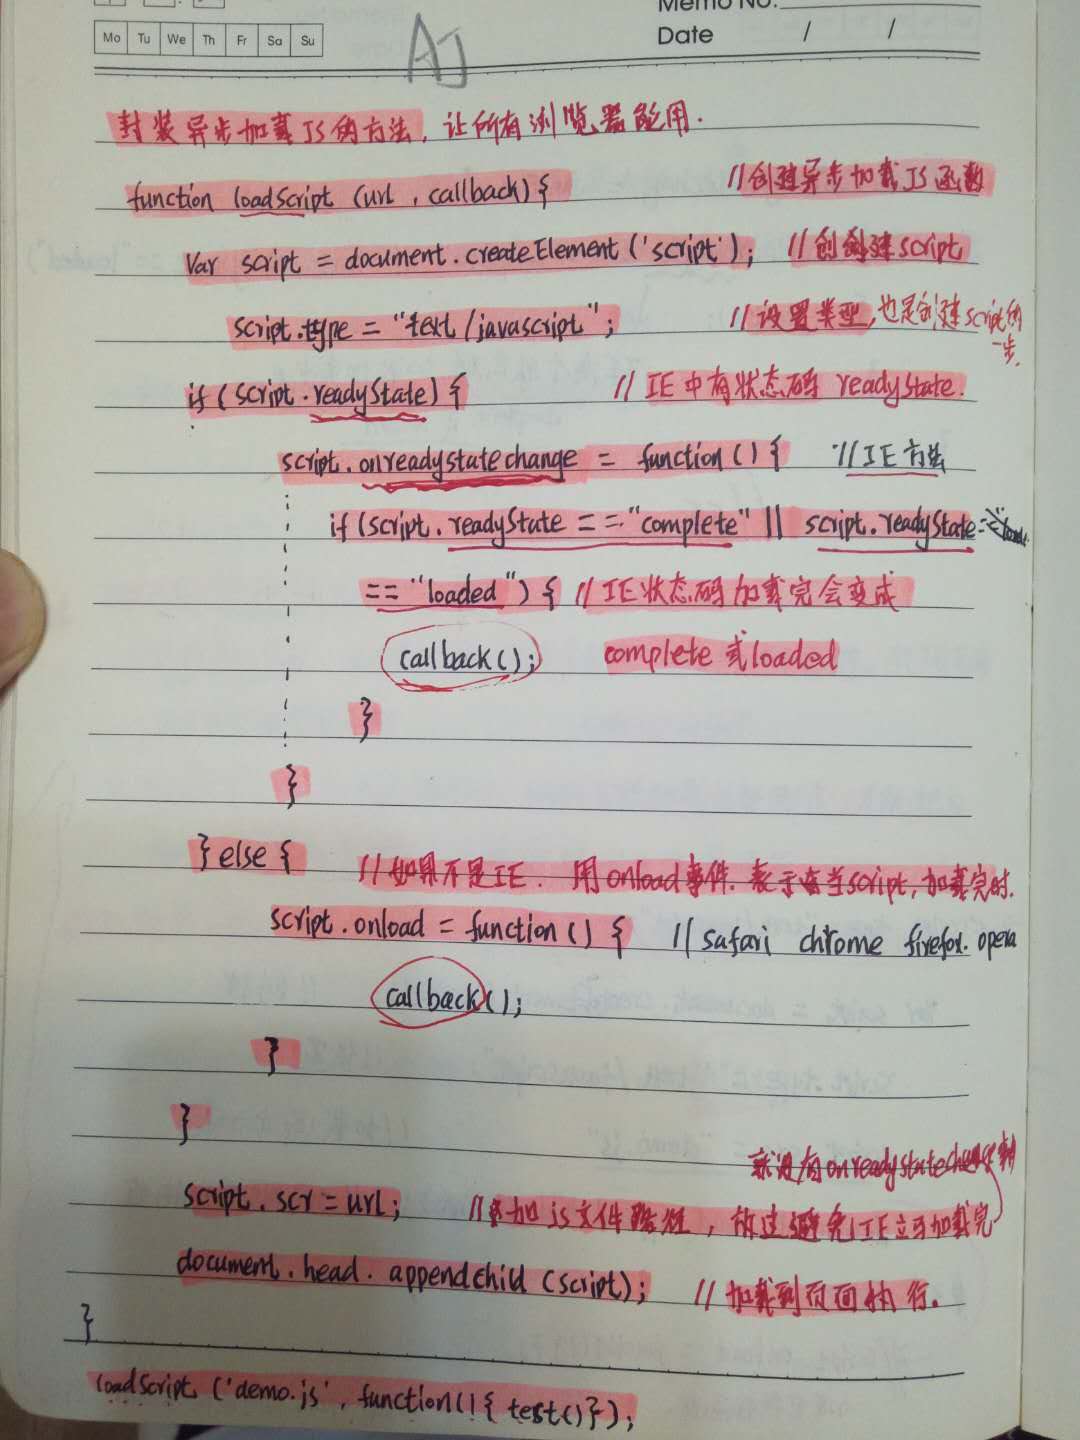 Memo No.
Mo Tu We Th Fr Sa Su
Date / /
AJ
封装异步加载JS的方法, 让所有浏览器能用.
function loadScript (url , callback) { //创建异步加载JS函数
Var script = document.createElement ('script'); //创创建script
script.type = "text/javascript"; //设置类型,也是创建script的
一步.
if (script.readyState) { // IE中有状态码 readyState.
script.onreadystatechange = function () { //IE方法
if (script.readyState == "complete" || script.readyState =
== "loaded") { // IE状态码加载完会变成
callback(); complete 或loaded
}
}
} else { //如果不是IE. 用onload事件. 表示当script,加载完时.
script.onload = function () { // safari chrome firefox. opera
callback();
}
}
就没有onreadystatechange
script.scr = url; //加js文件路径, 放这避免IE立马加载完
document.head.appendchild (script); // 加载到页面执行.
}
loadScript ('demo.js', function(){ test()});